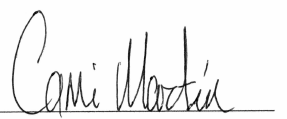 Cami Martin